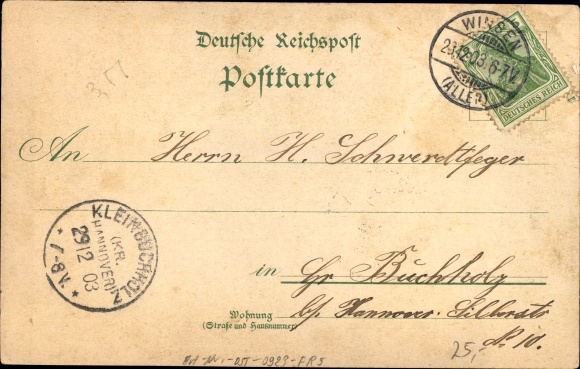 Deutsche Reichspost
Postkarte
WINSEN
29.12.03. 6-7V.
(ALLER)
DEUTSCHES REICH
377
An Herrn H. Schwerdtfeger
KLEINBUCHHOLZ
(KR.
HANNOVER)
29/12 03
7-8V.
in Gr Buchholz
Wohnung
(Straße und Hausnummer)
b/ Hannover. Silberstr
No 10.
25,-